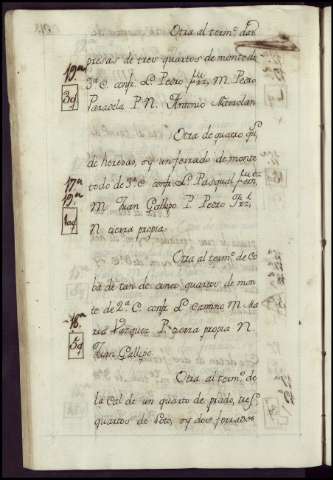 Otra al term.º das
presas de tres quartos de monte de
3.ª C. conf. L. Pedro M. Pedro
Paradela P. N. Antonio
Otra de quatro
de heredas, oy un ferrado de monte
todo de 3.ª C. conf. L. Pasqual
M. Juan Gallego P. Pedro
N tierra propia
Otra al term.º de Co
ba de tan de cinco quartos de mon
te de 2.ª C. conf. L. camino M. Ma
ria Vazquez P. tierra propia N.
Juan Gallego
Otra al term.º de
la Cal de un quarto de prado, tres
quartos de Soto, oy dos ferrados